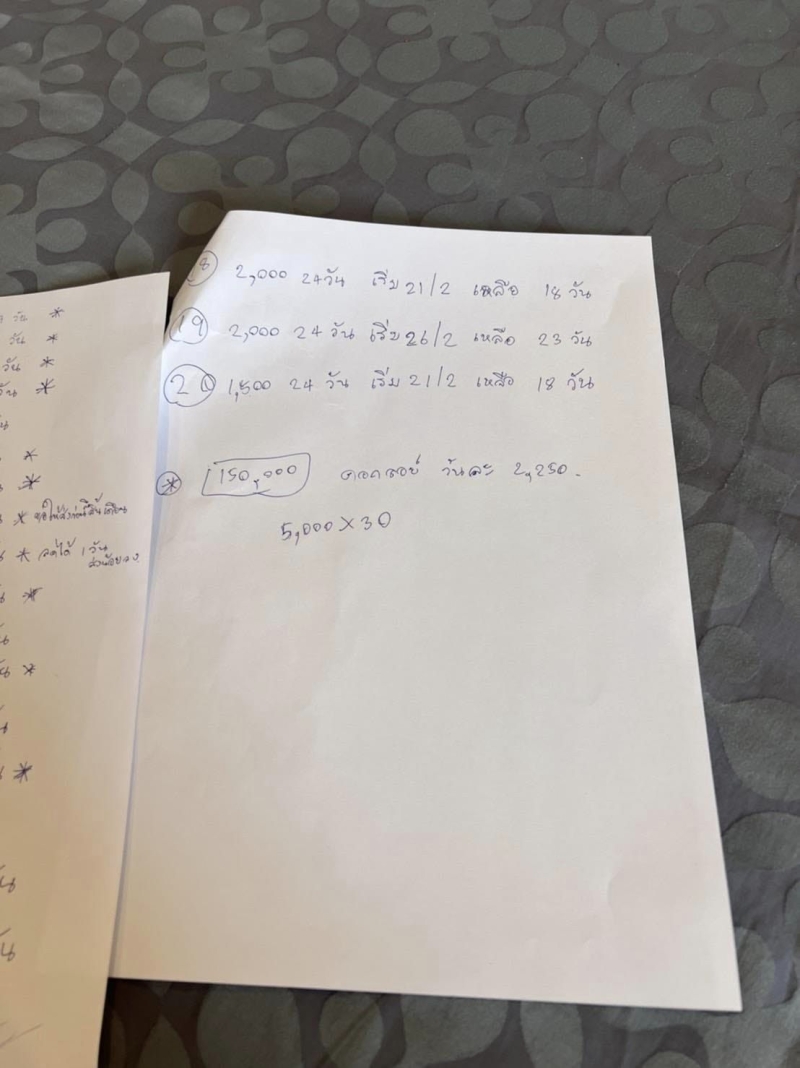 วัน *
วัน *
วัน *
วัน *
*
*
*
* ลดได้ 1 วัน
*
วัน *
*
18 2,000 24 วัน เริ่ม 21/2 เหลือ 18 วัน
19 2,000 24 วัน เริ่ม 26/2 เหลือ 23 วัน
20 1,500 24 วัน เริ่ม 21/2 เหลือ 18 วัน
* 150,000 ดอกลอย วันละ 2,250.
5,000 X 30